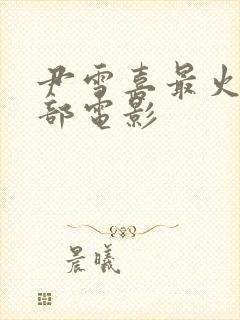 尹雪喜最火
部电影
晨曦